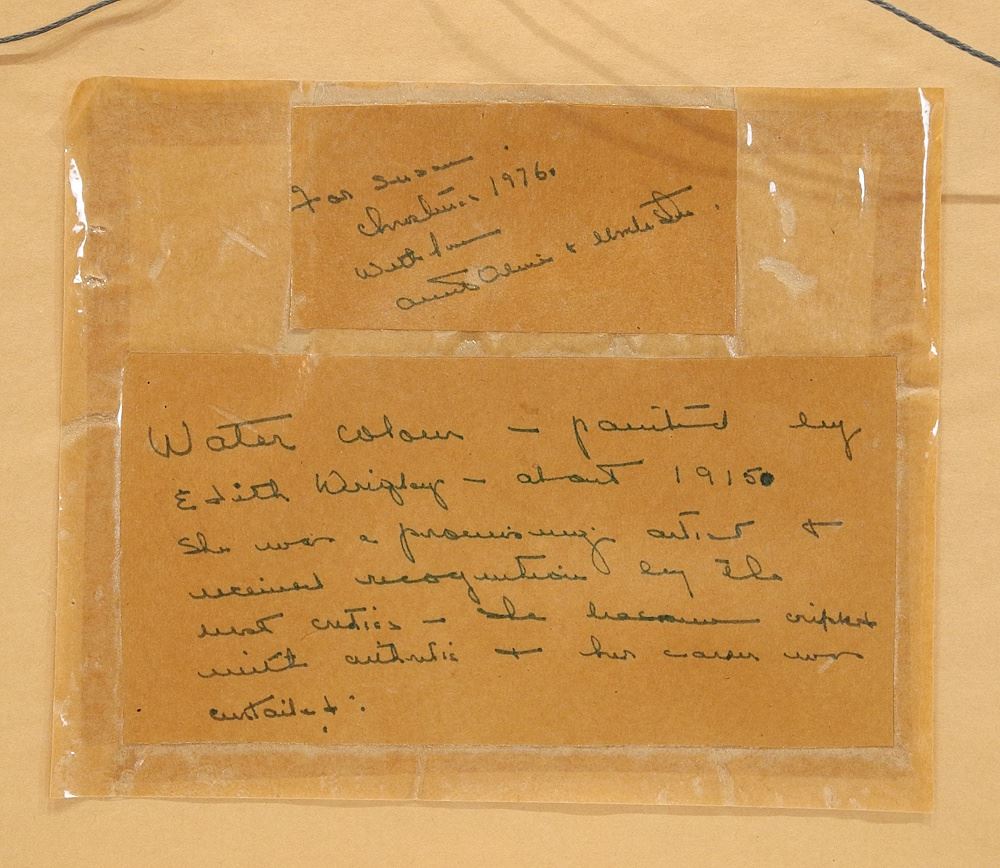 For Susan
Christmas 1976.
With love
Aunt & Uncle
Water colour – painted by
Edith Wrigley – about 1915.
She was a promising artist &
received recognition by the
most critics – she became cripled
with arthritis & her career was
curtailed.